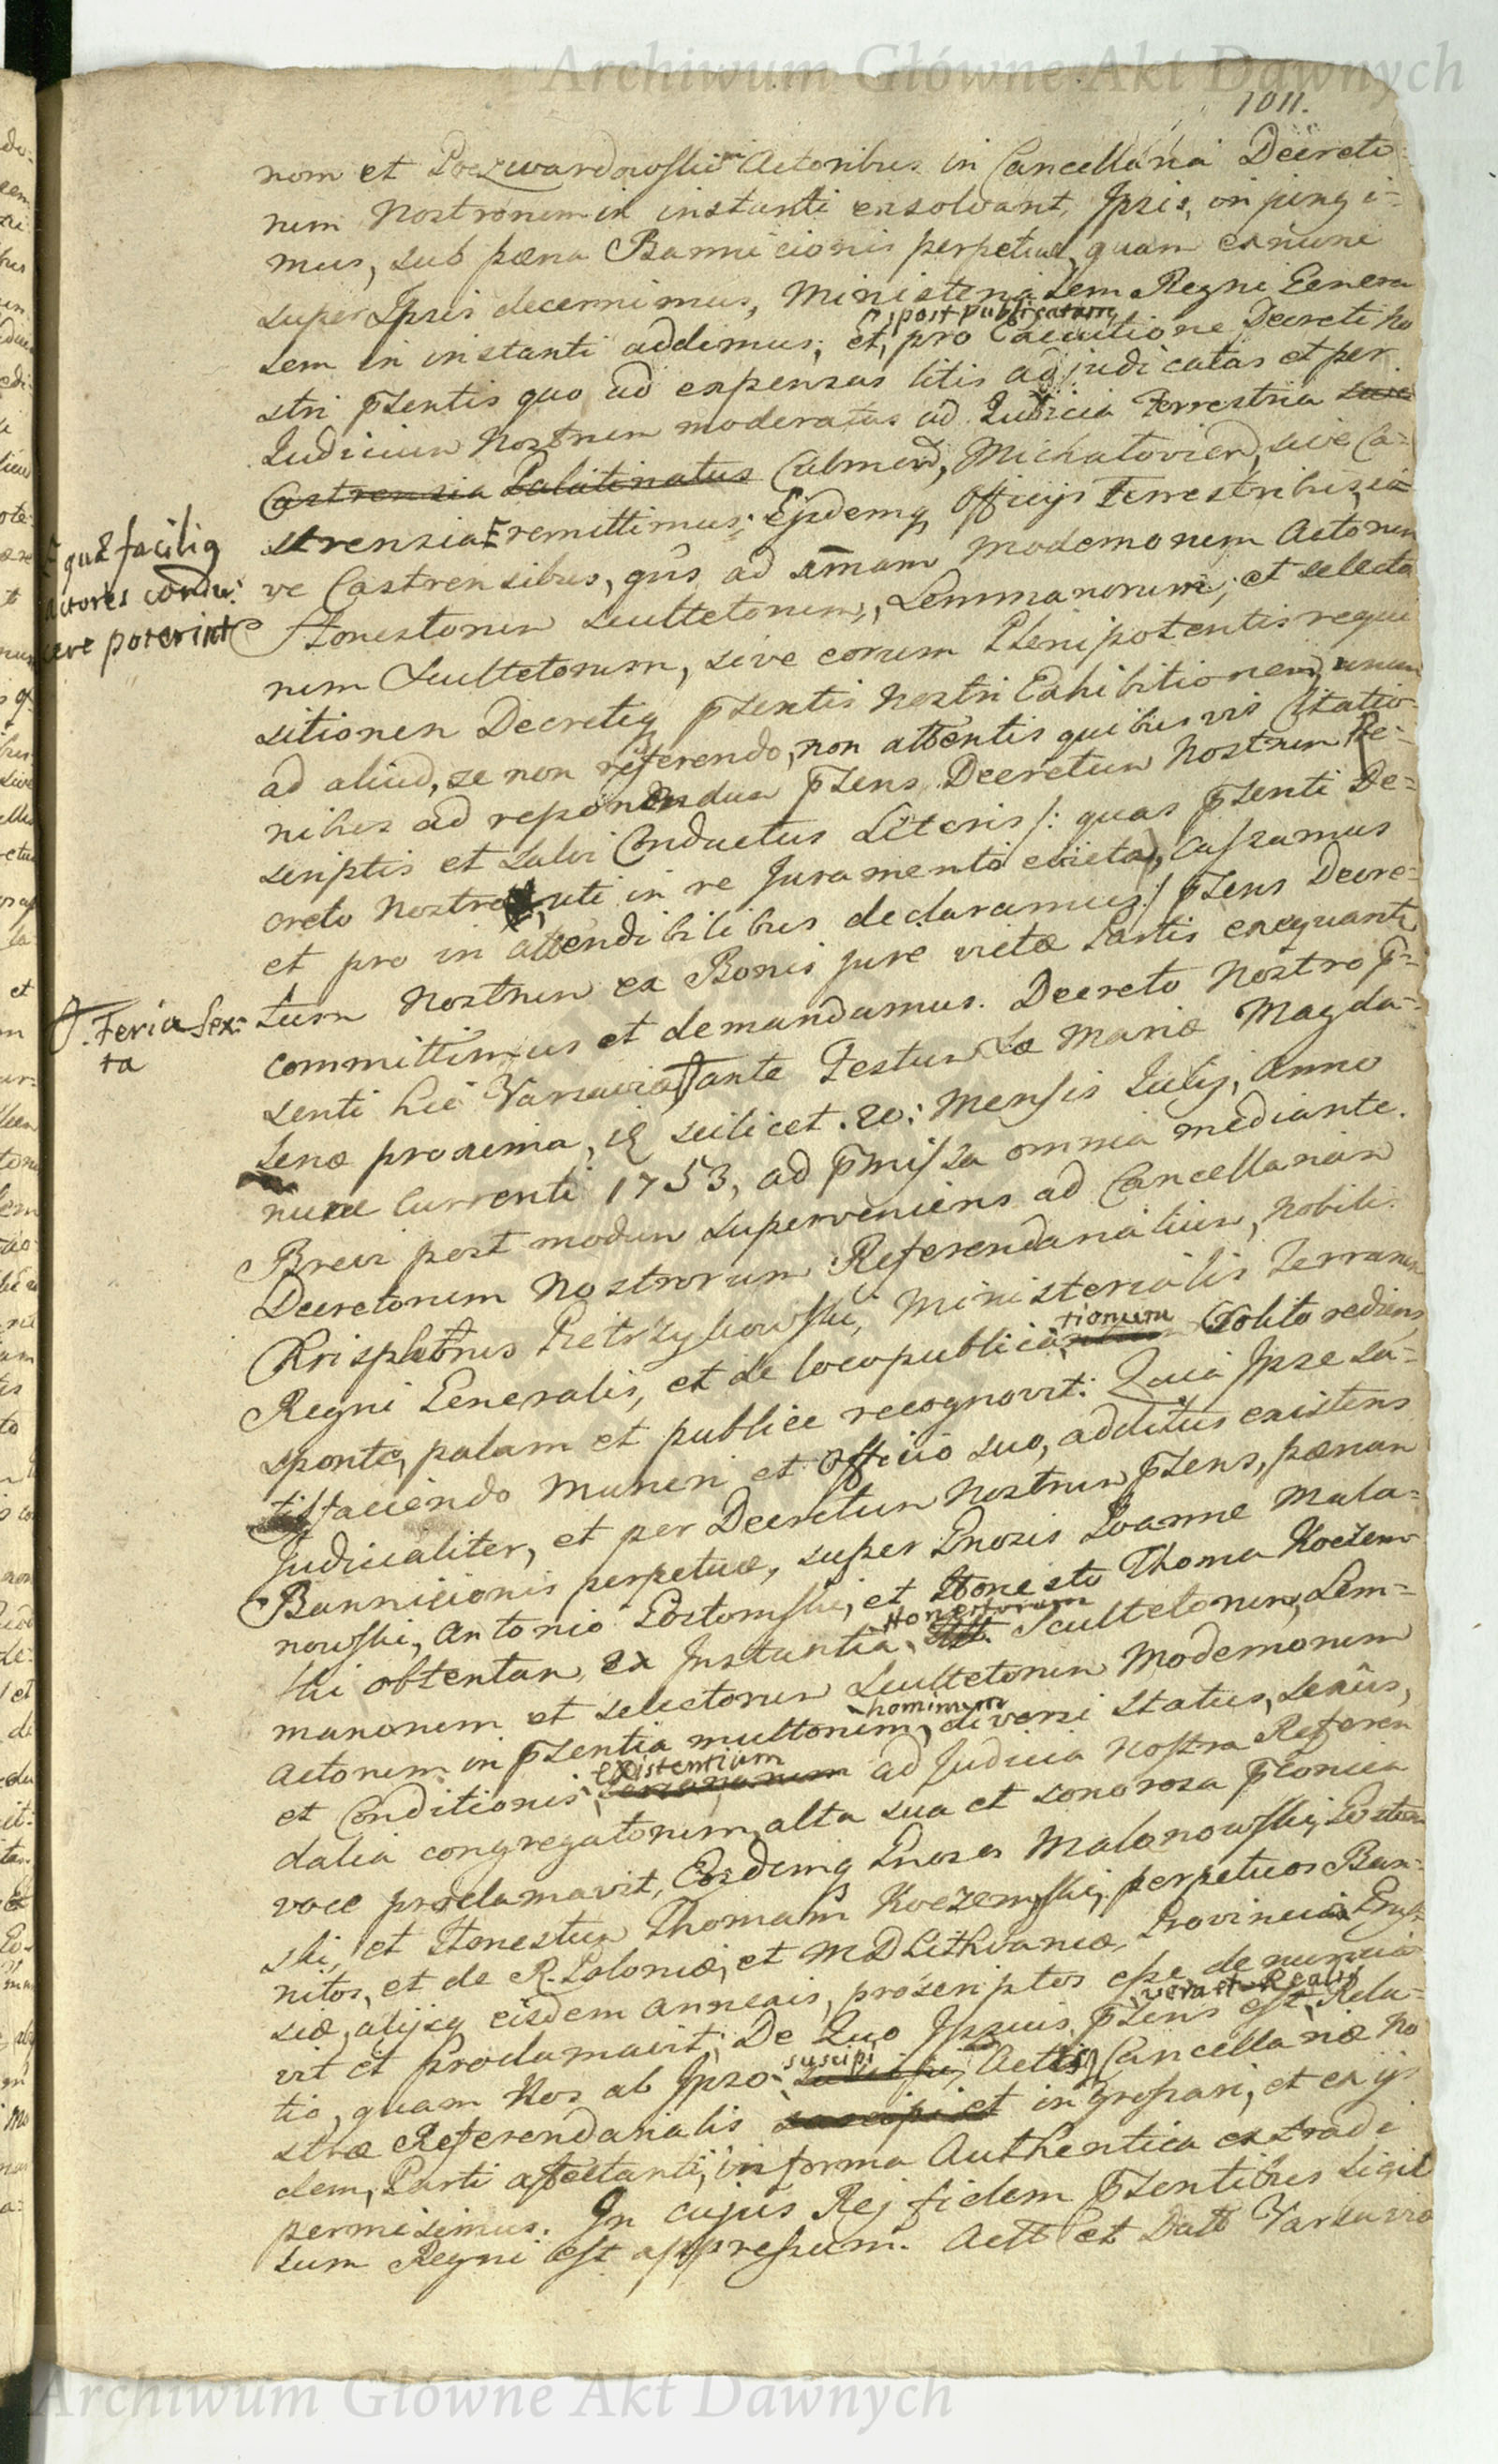 Archiwum Główne Akt Dawnych
1011.
nom et Przezwardowski Actoribus in Cancellaria Decreto
rum Nostrorum in instanti exsolvant, Ipsis, injungi-
mus, sub pæna Bannicionis perpetuæ, quam ex nunc
super Ipsis decernimus, Ministerialem Regni Genera
lem in instanti addimus; et, pro Executione Decreti No
post publicatam
stri pſentis quo ad expensas litis adjudicatas et per
Judicium Nostrum moderatas ad Judicia Terrestria sive
Castrensia Palatinatus Culmen, Michalovien, sive Ca-
strensia remittimus; Ejsdemq Officijs Terrestribus, si
quæ faciliq
actores condu:
cere poterint
ve Castrensibus, qûs ad om̄am modernorum Actorum
Honestorum Scultetorum, Lemmanorum, et selecto
rum Scultetorum, sive eorum Plenipotentis requi
sitionem Decretiq pſentis Nostri Exhibitionem, unum
ad aliud, se non referendo, non attentis quibusvis Citatio
nibus ad reponendum pſens Decretum Nostrum Re-
scriptis et Salvi Conductus Literis /: quas pſenti De-
creto Nostro, uti in re Juramento evicta, Cassamus
et pro in attendibilibus declaramus :/ pſens Decre-
tum Nostrum ex Bonis jure victæ Partis exequanti
committimus et demandamus. Decreto Nostro p-
Feria Sex-
ta
senti hic Varsaviæ, ante Festum Sæ Mariæ Magda-
lenæ proxima, id scilicet .20: Mensis Julij, Anno
nunc currenti 1753, ad pmissa omnia mediante.
Brevi post modum superveniens ad Cancellariam
Decretorum Nostrorum Referendarialium, Nobilis
Krisphorus Pietrzykowski, Ministerialis Terrarum
Regni Generalis, et de loco publica
tionum
solito rediens
sponte, palam et publice recognovit: Quia Ipse sa-
tisfaciendo Muneri et Officio suo, additus existens
Judicialiter, et per Decretum Nostrum pſens, pænam
Bannicionis perpetuæ, super Gnosis Joanne Mala-
nowski, Antonio Gostomski, et Honesto Thoma Koczem-
ski obtentam, ex Instantia,
Honestorum
Scultetorum, Lem-
manorum et selectorum Scultetorum Modernorum
Actorum in pſentia multorum,
hominum
diversi status, sexûs,
et Conditionis,
existentium
ad Judicia Nostra Referen
dalia congregatorum, alta sua et sonorosa pconica
voce proclamavit, Eosdemq Gnosos Malonowski, Gostom
ski, et Honestum Thomam Koczemski, perpetuos Ban-
nitos, et de R. Poloniæ, et M D Lithvaniæ, Provincia
siæ, alijsq eisdem annexis, proscriptos esse denuncia
vit et Proclamavit; De Quo Ipsius pſens est
vera et Realis
Rela-
tio, quam Nos ab Ipso
suscipi
Actis Cancellariæ No
stræ Referendarialis ingrossari, et ex ijs
dem, Parti affectanti, in forma Authentica extradi
permisimus. In cujus Rej fidem pſentibus Sigil
lum Regni est appressum. Actt et Datt Varsaviæ
Archiwum Główne Akt Dawnych